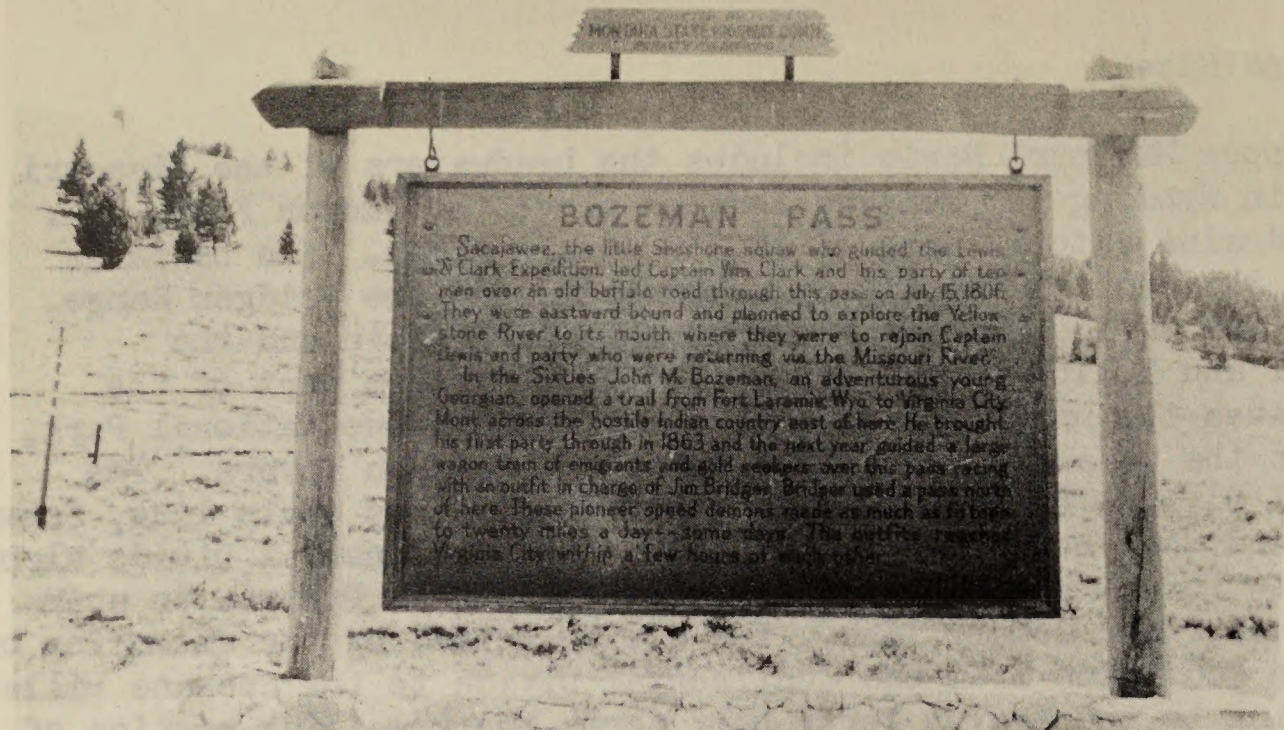 MONTANA STATE HIGHWAY COMM.
BOZEMAN PASS
Sacajawea, the little Shoshone squaw who guided the Lewis
& Clark Expedition, led Captain Wm. Clark and his party of ten
men over an old buffalo road through this pass on July 15, 1806.
They were eastward bound and planned to explore the Yellow-
stone River to its mouth where they were to rejoin Captain
Lewis and party who were returning via the Missouri River.
In the Sixties John M. Bozeman, an adventurous young
Georgian, opened a trail from Fort Laramie, Wyo. to Virginia City,
Mont. across the hostile Indian country east of here. He brought
his first party through in 1863 and the next year guided a large
wagon train of emigrants and gold seekers over this pass racing
with an outfit in charge of Jim Bridger. Bridger used a pass north
of here. These pioneer speed demons made as much as fifteen
to twenty miles a day--some days. The outfits reached
Virginia City within a few hours of each other.